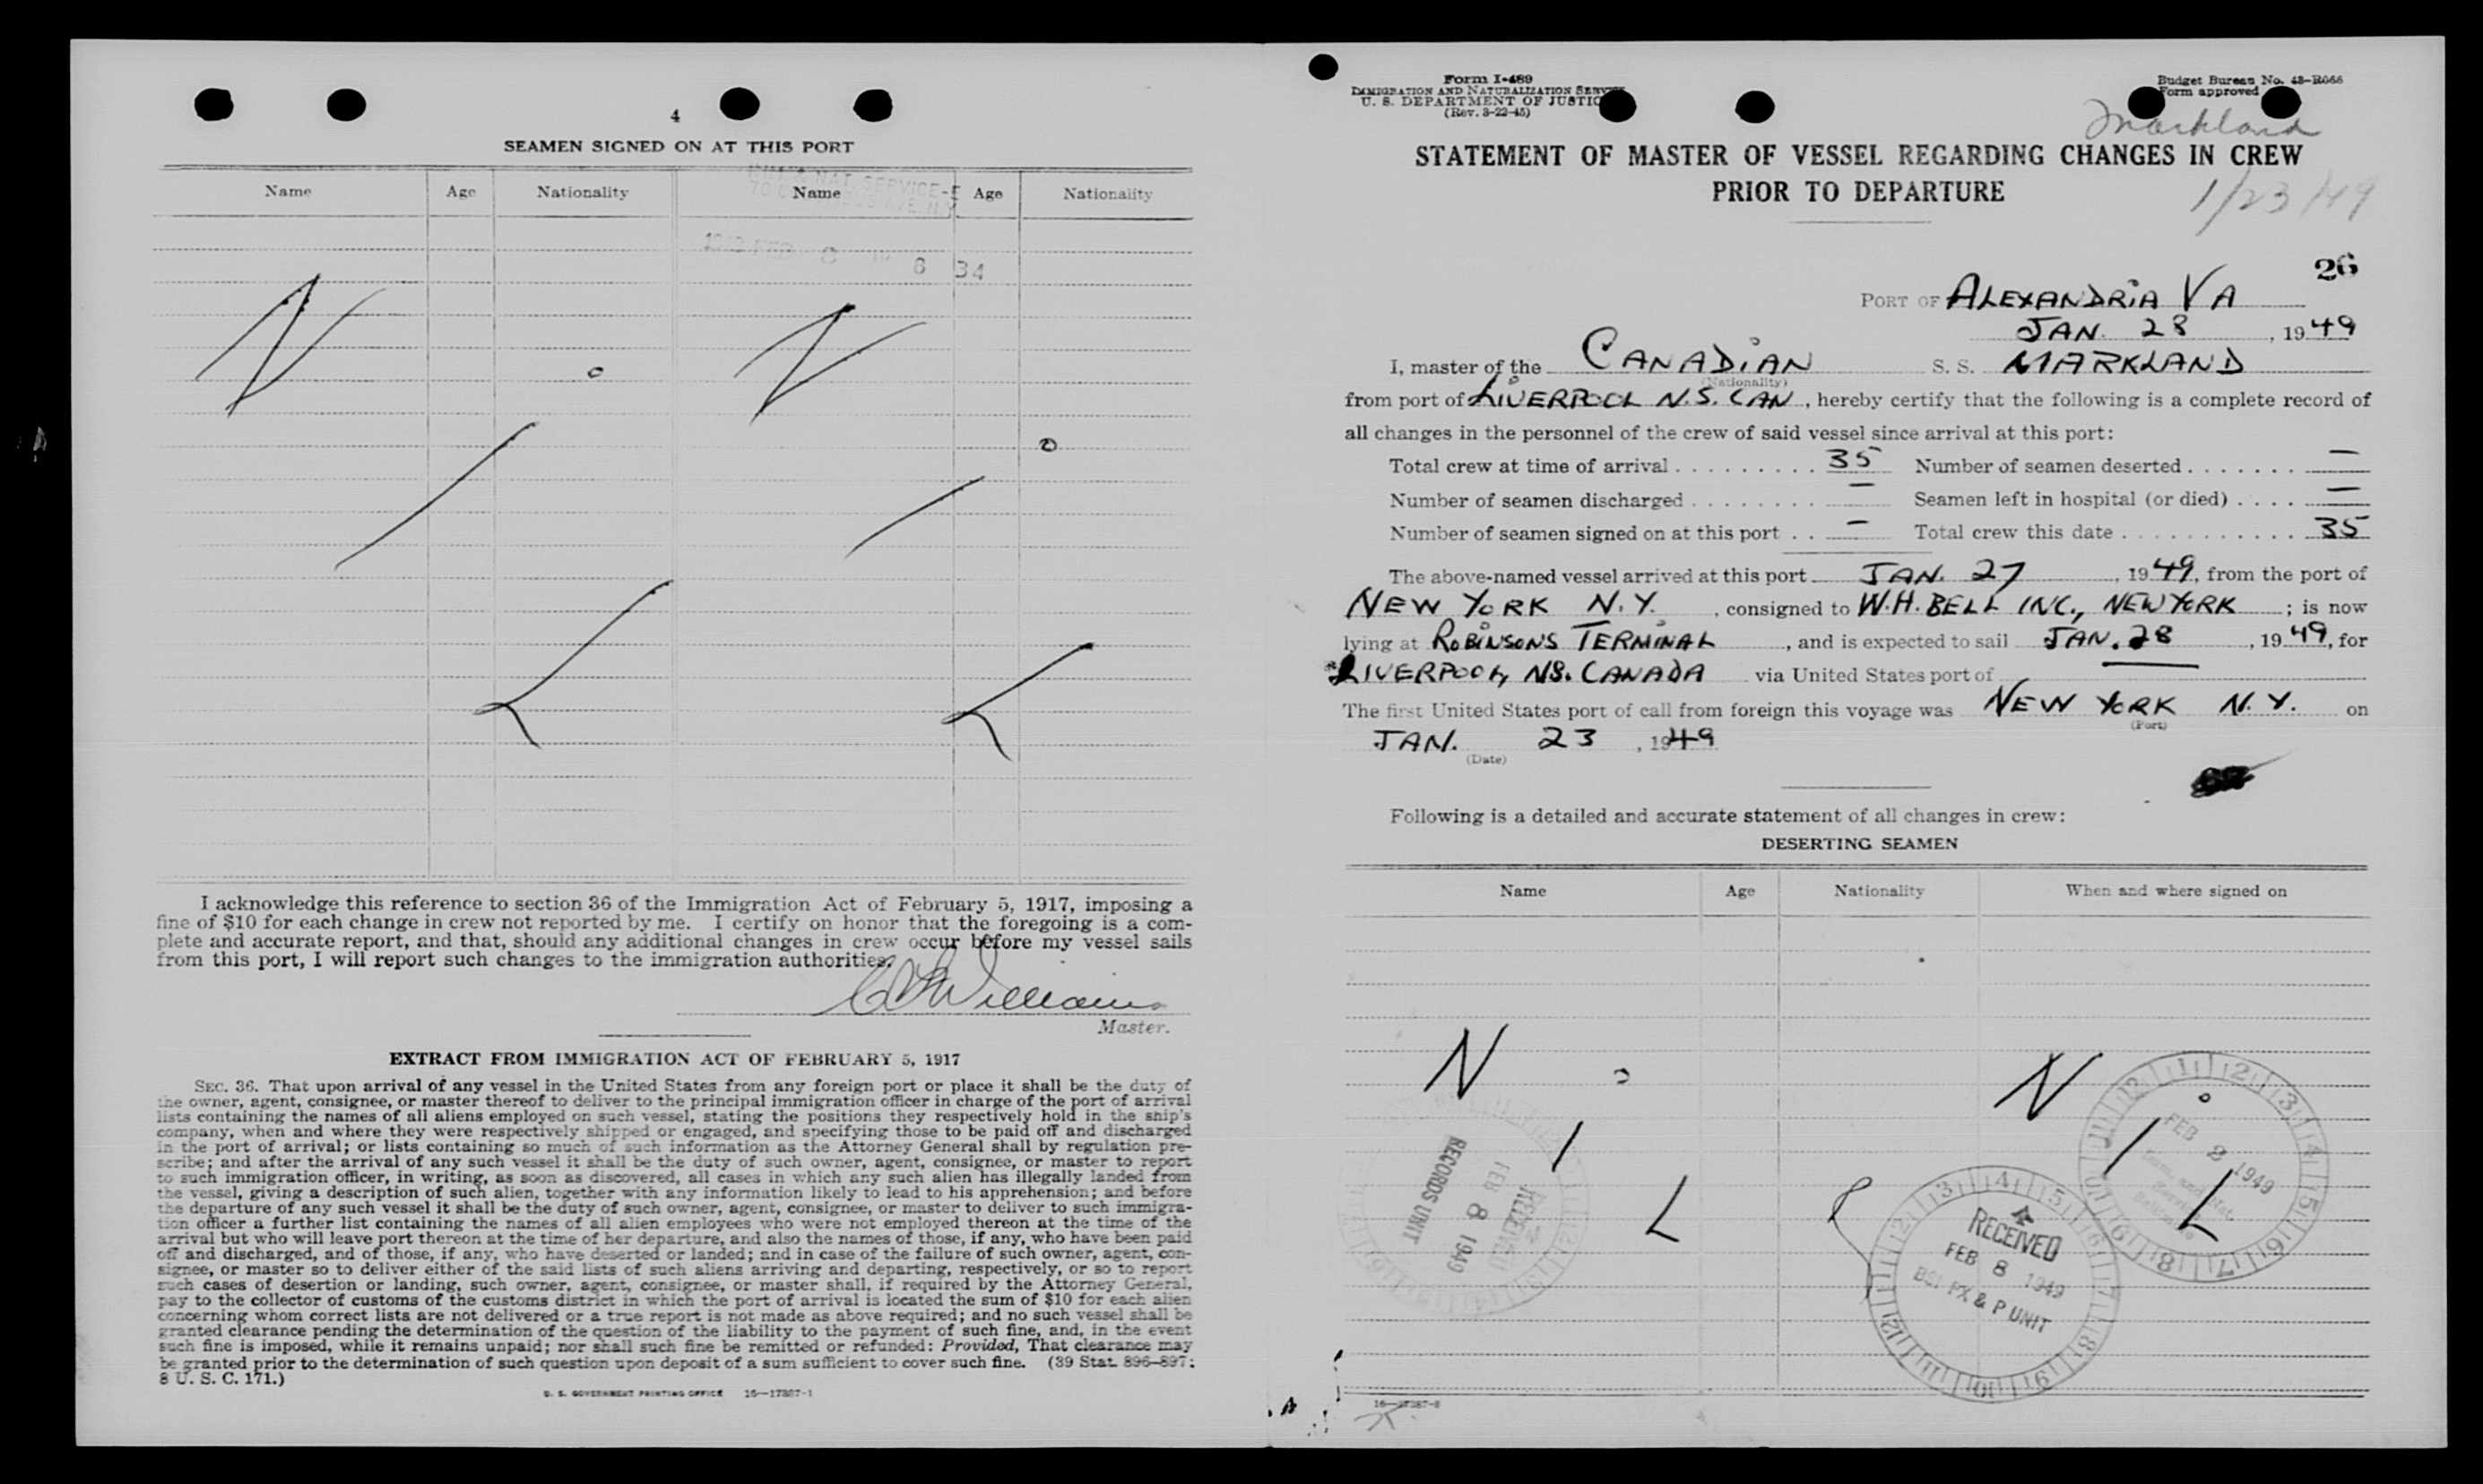 4
SEAMEN SIGNED ON AT THIS PORT
Name Age Nationality Name Age Nationality
8 6 34
N N
I I
L L
I acknowledge this reference to section 36 of the Immigration Act of February 5, 1917, imposing a
fine of $10 for each change in crew not reported by me. I certify on honor that the foregoing is a com-
plete and accurate report, and that, should any additional changes in crew occur before my vessel sails
from this port, I will report such changes to the immigration authorities.
Williams
Master.
EXTRACT FROM IMMIGRATION ACT OF FEBRUARY 5, 1917
SEC. 36. That upon arrival of any vessel in the United States from any foreign port or place it shall be the duty of
the owner, agent, consignee, or master thereof to deliver to the principal immigration officer in charge of the port of arrival
lists containing the names of all aliens employed on such vessel, stating the positions they respectively hold in the ship's
company, when and where they were respectively shipped or engaged, and specifying those to be paid off and discharged
in the port of arrival; or lists containing so much of such information as the Attorney General shall by regulation pre-
scribe; and after the arrival of any such vessel it shall be the duty of such owner, agent, consignee, or master to report
to such immigration officer, in writing, as soon as discovered, all cases in which any such alien has illegally landed from
the vessel, giving a description of such alien, together with any information likely to lead to his apprehension; and before
the departure of any such vessel it shall be the duty of such owner, agent, consignee, or master to deliver to such immigra-
tion officer a further list containing the names of all alien employees who were not employed thereon at the time of the
arrival but who will leave port thereon at the time of her departure, and also the names of those, if any, who have been paid
off and discharged, and of those, if any, who have deserted or landed; and in case of the failure of such owner, agent, con-
signee, or master so to deliver either of the said lists of such aliens arriving and departing, respectively, or so to report
such cases of desertion or landing, such owner, agent, consignee, or master shall, if required by the Attorney General,
pay to the collector of customs of the customs district in which the port of arrival is located the sum of $10 for each alien
concerning whom correct lists are not delivered or a true report is not made as above required; and no such vessel shall be
granted clearance pending the determination of the question of the liability to the payment of such fine, and, in the event
such fine is imposed, while it remains unpaid; nor shall such fine be remitted or refunded: Provided, That clearance may
be granted prior to the determination of such question upon deposit of a sum sufficient to cover such fine. (39 Stat. 896-897;
8 U. S. C. 171.)
U. S. GOVERNMENT PRINTING OFFICE 16—17387-1
Form I-489
IMMIGRATION AND NATURALIZATION SERVICE
U. S. DEPARTMENT OF JUSTICE
(Rev. 3-22-45)
Budget Bureau No. 43-R066
Form approved
Markland
STATEMENT OF MASTER OF VESSEL REGARDING CHANGES IN CREW
PRIOR TO DEPARTURE
1/23/49
26
PORT OF ALEXANDRIA VA
JAN. 28, 1949
I, master of the CANADIAN S. S. MARKLAND
(Nationality)
from port of LIVERPOOL N.S. CAN, hereby certify that the following is a complete record of
all changes in the personnel of the crew of said vessel since arrival at this port:
Total crew at time of arrival . . . . . . . . . 35 Number of seamen deserted . . . . . . . —
Number of seamen discharged . . . . . . . . — Seamen left in hospital (or died) . . . . —
Number of seamen signed on at this port . . — Total crew this date . . . . . . . . . . . . 35
The above-named vessel arrived at this port JAN. 27, 1949, from the port of
NEW YORK N.Y., consigned to W.H. BELL INC., NEW YORK; is now
lying at ROBINSONS TERMINAL, and is expected to sail JAN. 28, 1949, for
LIVERPOOL, NS. CANADA via United States port of —
The first United States port of call from foreign this voyage was NEW YORK N.Y. on
(Port)
JAN. 23, 1949
(Date)
Following is a detailed and accurate statement of all changes in crew:
DESERTING SEAMEN
Name Age Nationality When and where signed on
N N
I I
L L
RECORDS UNIT
FEB 8 1949
RECEIVED
FEB 8 1949
RECEIVED
FEB 8 1949
PX & P UNIT